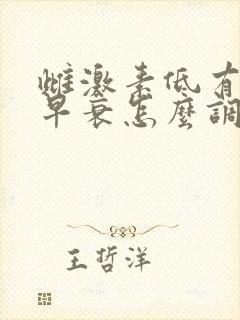 雌激素低有
早衰怎麼調
王哲洋